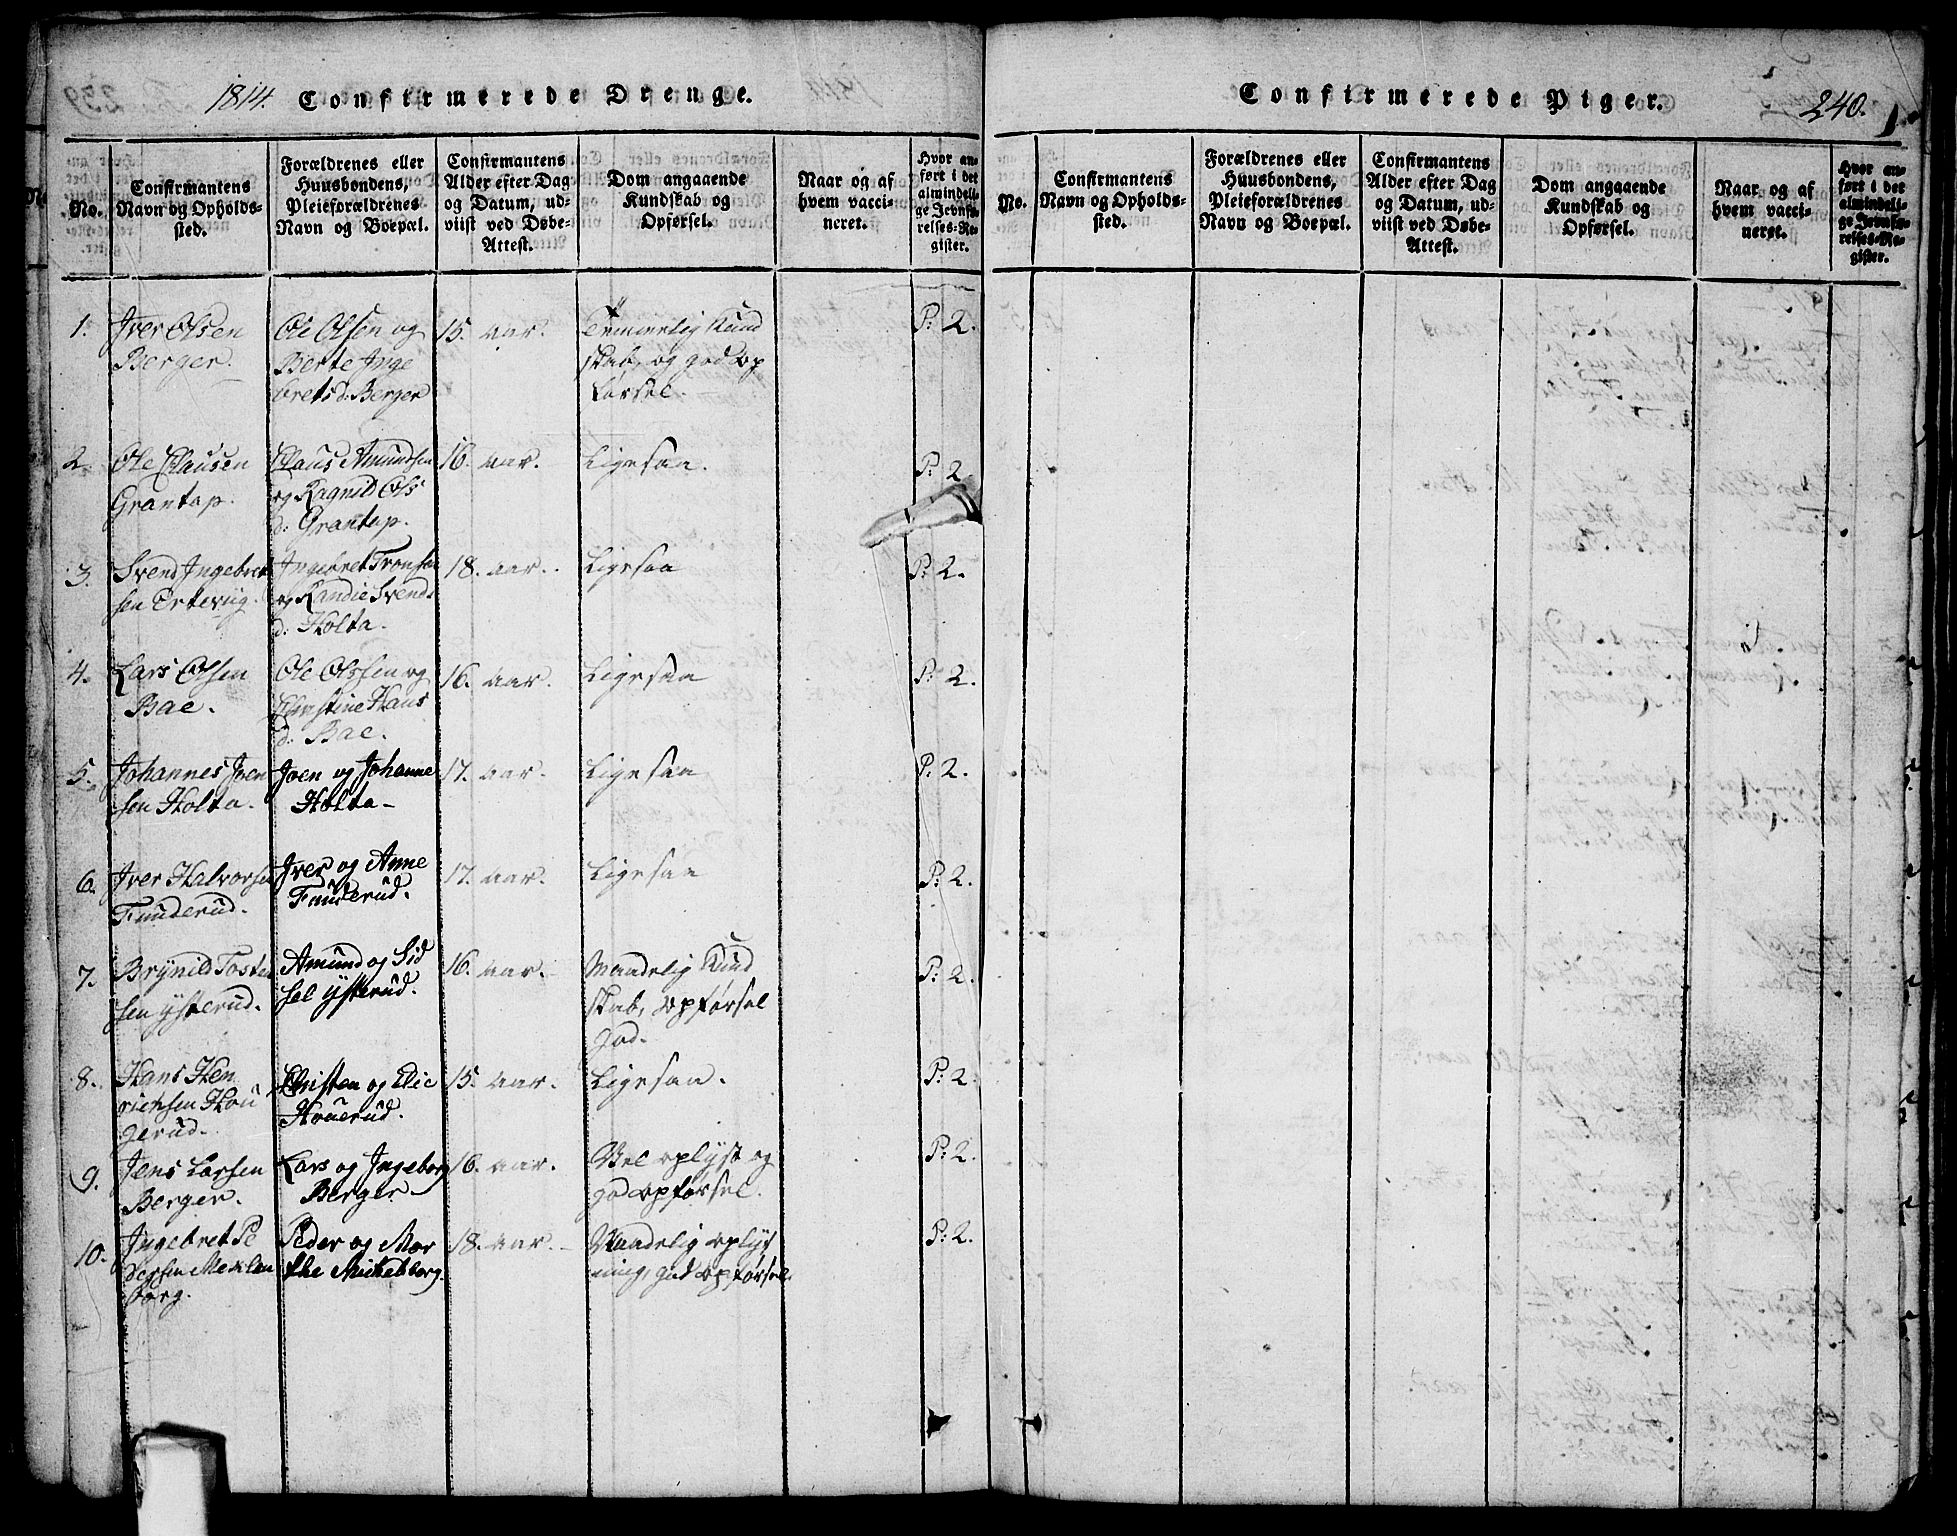 1814. Confirmerede Drenge.
No.
Confirmantens
Navn og Opholds-
sted.
Forældrenes eller
Huusbondens,
Pleieforældrenes
Navn og Boepæl.
Confirmantens
Alder efter Dag
og Datum, ud-
viist ved Døbe-
Attest.
Dom angaaende
Kundskab og
Opførsel.
Naar og af
hvem vacci-
neret.
Hvor an-
ført i det
almindeli-
ge Jevnfø-
relses-Re-
gister.
1. Iver Olsen
Berger.
Ole Olsen og
Berte Inge
brets d: Berger
15. aar.
Temmerlig Kund
skab, og god Op
førsel.
P: 2.
2. Ole Clausen
Grantop.
Claus Amundsen
og Ragnild Ols
d: Grantop.
16. aar.
Ligesaa.
P: 2
3. Svend Ingebret
sen Ertevug.
Ingebret Tronsen
og Randie Svends
d: Holta.
18. aar.
Ligesaa
P: 2.
4. Lars Olsen
Bae.
Ole Olssen og
Christine Hans
d: Bae.
16. aar.
Ligesaa
P: 2.
5. Johannes Joen
sen Holta.
Joen og Johanne
Holta-
17. aar.
Ligesaa
P: 2.
6. Iver Halvorsen
Funderud.
Iver og Anne
Funderud.
17. aar.
Ligesaa
P: 2.
7. Brynild Tosten
sen Ysterud.
Amund og Sid
sel Ysterud.
16. aar.
Maadelig Kund
skab, opførsel
god.
P: 2.
8. Hans Hen
richsen Hou
gerud.
Christen og Elie
Houerud.
15. aar.
Ligesaa.
P: 2
9. Jens Larsen
Berger.
Lars og Ingeborg
Berger-
16. aar.
Vel oplyst og
god opførsel.
P: 2.
10. Ingebret Pe
dersen Meklen
borg.
Peder og Mar
the Mickelborg.
18. aar.
Maadelig oplys
ning, god opførsel.
P: 2.
Confirmerede Piger. 240.
No.
Confirmantens
Navn og Opholds-
sted.
Forældrenes eller
Huusbondens,
Pleieforældrenes
Navn og Boepæl.
Confirmantens
Alder efter Dag
og Datum, ud-
viist ved Døbe-
Attest.
Dom angaaende
Kundskab og
Opførsel.
Naar og af
hvem vacci-
neret.
Hvor an-
ført i det
almindeli-
ge Jevnfø-
relses-Re-
gister.